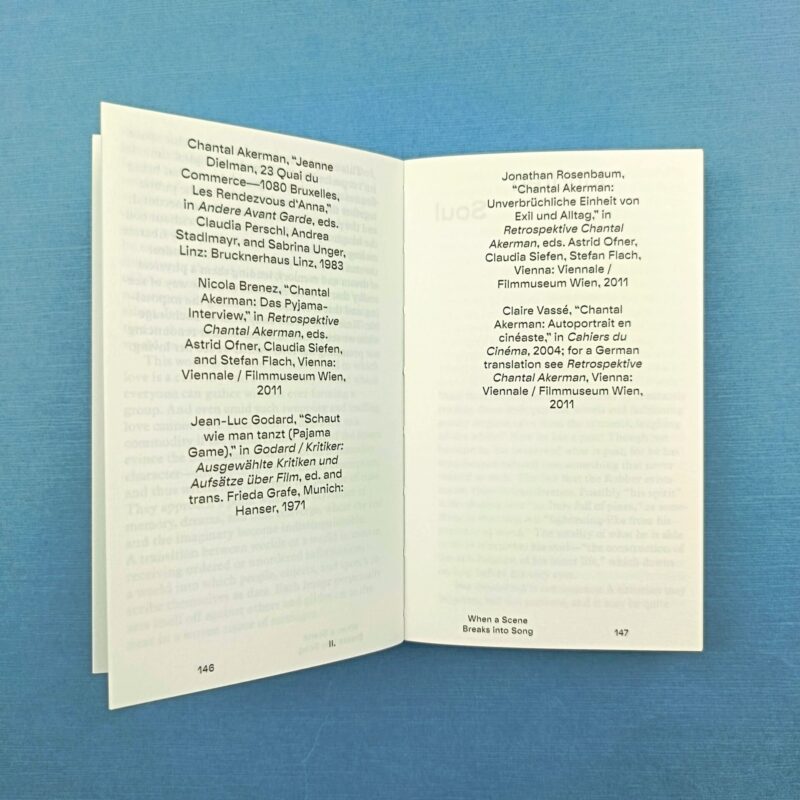 Chantal Akerman, “Jeanne
Dielman, 23 Quai du
Commerce—1080 Bruxelles,
Les Rendezvous d‘Anna,”
in Andere Avant Garde, eds.
Claudia Perschl, Andrea
Stadlmayr, and Sabrina Unger,
Linz: Brucknerhaus Linz, 1983
Nicola Brenez, “Chantal
Akerman: Das Pyjama-
Interview,” in Retrospektive
Chantal Akerman, eds.
Astrid Ofner, Claudia Siefen,
and Stefan Flach, Vienna:
Viennale / Filmmuseum Wien,
2011
Jean-Luc Godard, “Schaut
wie man tanzt (Pajama
Game),” in Godard / Kritiker:
Ausgewählte Kritiken und
Aufsätze über Film, ed. and
trans. Frieda Grafe, Munich:
Hanser, 1971
146
II.
Jonathan Rosenbaum,
“Chantal Akerman:
Unverbrüchliche Einheit von
Exil und Alltag,” in
Retrospektive Chantal
Akerman, eds. Astrid Ofner,
Claudia Siefen, Stefan Flach,
Vienna: Viennale /
Filmmuseum Wien, 2011
Claire Vassé, “Chantal
Akerman: Autoportrait en
cinéaste,” in Cahiers du
Cinéma, 2004; for a German
translation see Retrospektive
Chantal Akerman, Vienna:
Viennale / Filmmuseum Wien,
2011
When a Scene
Breaks into Song
147